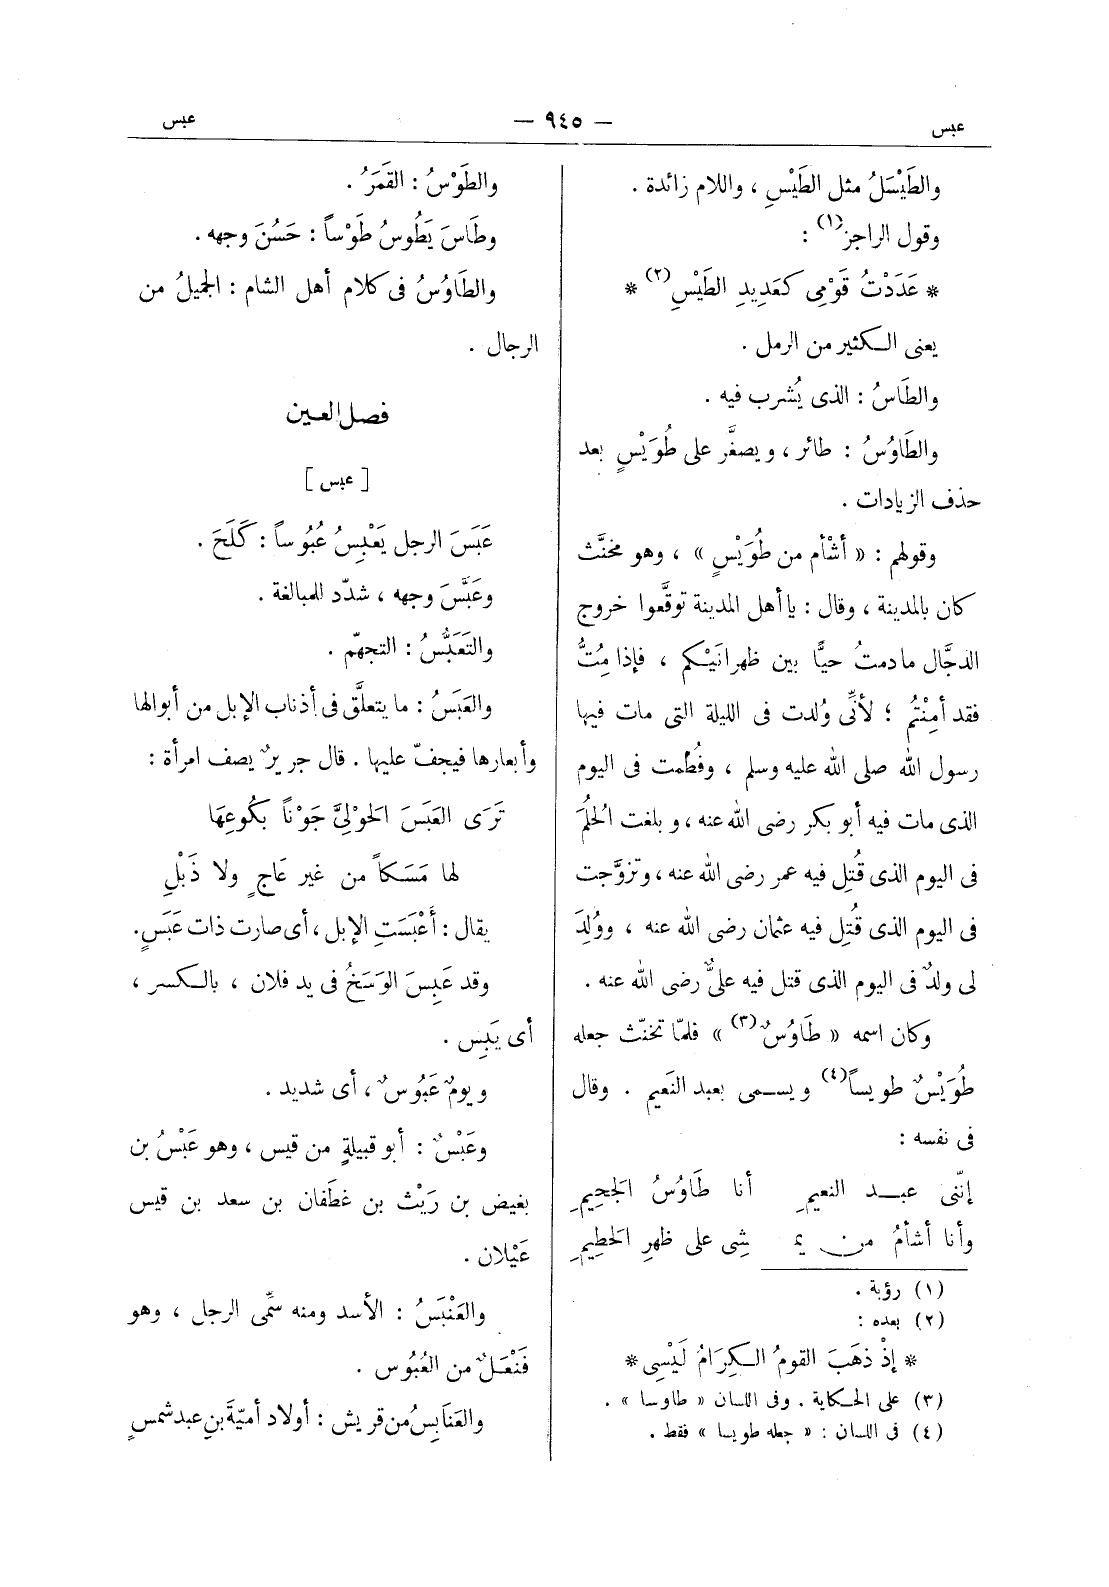 عبس — ٩٤٥ — عبس
والطَيْسَلُ مثل الطَيْسِ ، واللام زائدة .
وقول الراجز(١) :
* عَدَدْتُ قَوْمِى كَعَدِيدِ الطَيْسِ(٢) *
يعنى الكثير من الرمل .
والطَاسُ : الذى يُشرب فيه .
والطَاوُسُ : طائر ، ويصغَّر على طُوَيْسٍ بعد
حذف الزيادات .
وقولهم : « أشْأم من طُوَيْسٍ » ، وهو مخنَّث
كان بالمدينة ، وقال : يا أهل المدينة توقَّعوا خروج
الدجَّال ما دمتُ حيًّا بين ظهرانَيْكم ، فإذا مِتُّ
فقد أمِنْتُم ؛ لأنِّى وُلدت فى الليلة التى مات فيها
رسول الله صلى الله عليه وسلم ، وفُطمت فى اليوم
الذى مات فيه أبو بكر رضى الله عنه ، وبلغت الحُلُمَ
فى اليوم الذى قُتِل فيه عمر رضى الله عنه ، وتزوَّجت
فى اليوم الذى قُتِل فيه عثمان رضى الله عنه ، ووُلِدَ
لى ولدٌ فى اليوم الذى قتل فيه علىٌّ رضى الله عنه .
وكان اسمه « طَاوُسٌ(٣) » فلمّا تخنّث جعله
طُوَيْسٌ طويساً(٤) ويسمى بعبد النَعيم . وقال
فى نفسه :
إنّنى عبد النعيمِ أنا طَاوُسُ الجحِيمِ
وأنا أشأمُ من يمـ ـشِى على ظهرِ الحَطِيمِ
(١) رؤبة .
(٢) بعده :
* إذْ ذهَبَ القومُ الكِرَامُ لَيْسِى *
(٣) على الحكاية . وفى اللسان « طاوسا » .
(٤) فى اللسان : « جعله طويسا » فقط .
والطَوْسُ : القَمَرُ .
وطَاسَ يَطُوسُ طَوْساً : حَسُنَ وجهه .
والطَاوُسُ فى كلام أهل الشام : الجميلُ من
الرجال .
فصل العين
[ عبس ]
عَبَسَ الرجل يَعْبِسُ عُبُوساً : كَلَحَ .
وعَبَّسَ وجهه ، شدّد للمبالغة .
والتَعَبُّسُ : التجهّم .
والعَبَسُ : ما يتعلَّق فى أذناب الإبل من أبوالها
وأبعارها فيجفّ عليها . قال جريرٌ يصف امرأة :
تَرَى العَبَسَ الحَوْلِىَّ جَوْناً بكُوعِهَا
لها مَسَكاً من غير عَاجٍ ولا ذَبْلِ
يقال : أَعْبَسَتِ الإبل ، أى صارت ذات عَبَسٍ.
وقد عَبِسَ الوَسَخُ فى يد فلان ، بالكسر ،
أى يَبِس .
ويومٌ عَبُوسٌ ، أى شديد .
وعَبْسٌ : أبو قبيلةٍ من قيس ، وهو عَبْسُ بن
بغيض بن رَيْث بن غطَفان بن سعد بن قيس
عَيْلان .
والعَنْبَسُ : الأسد ومنه سمِّى الرجل ، وهو
فَنْعَلٌ من العُبُوس .
والعَنَابِسُ من قريش : أولاد أميّةَ بنِ عبد شمسٍ